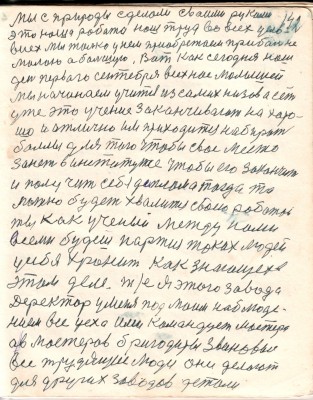 мы с природы сделали своими руками
это наша работа наш труд во всех
всех мы также у нем приобретали прибыл не
малою а большую. Вот как сегодня наш
ден первого сентебря все мое малышей
мы начинаем учится из самых низов а есть
уже это учение заканчивают на хоро-
шо и отлично им приходится набират
баллы для того чтобы свое место
занет в институте чтобы его закончит
и получит себе деплома тогда то
можно будет хвалится своею работой
ты как ученый между нами
всеми будеш партия токах людей
у себя хранит как знающех в
этом деле. т/е я этого завода
Деректор у меня под моим наблюде-
нием все цеха ими командует мастера
а в мастеров бригадиры звеновые
все трудящие люди они делают
для других заводов детали